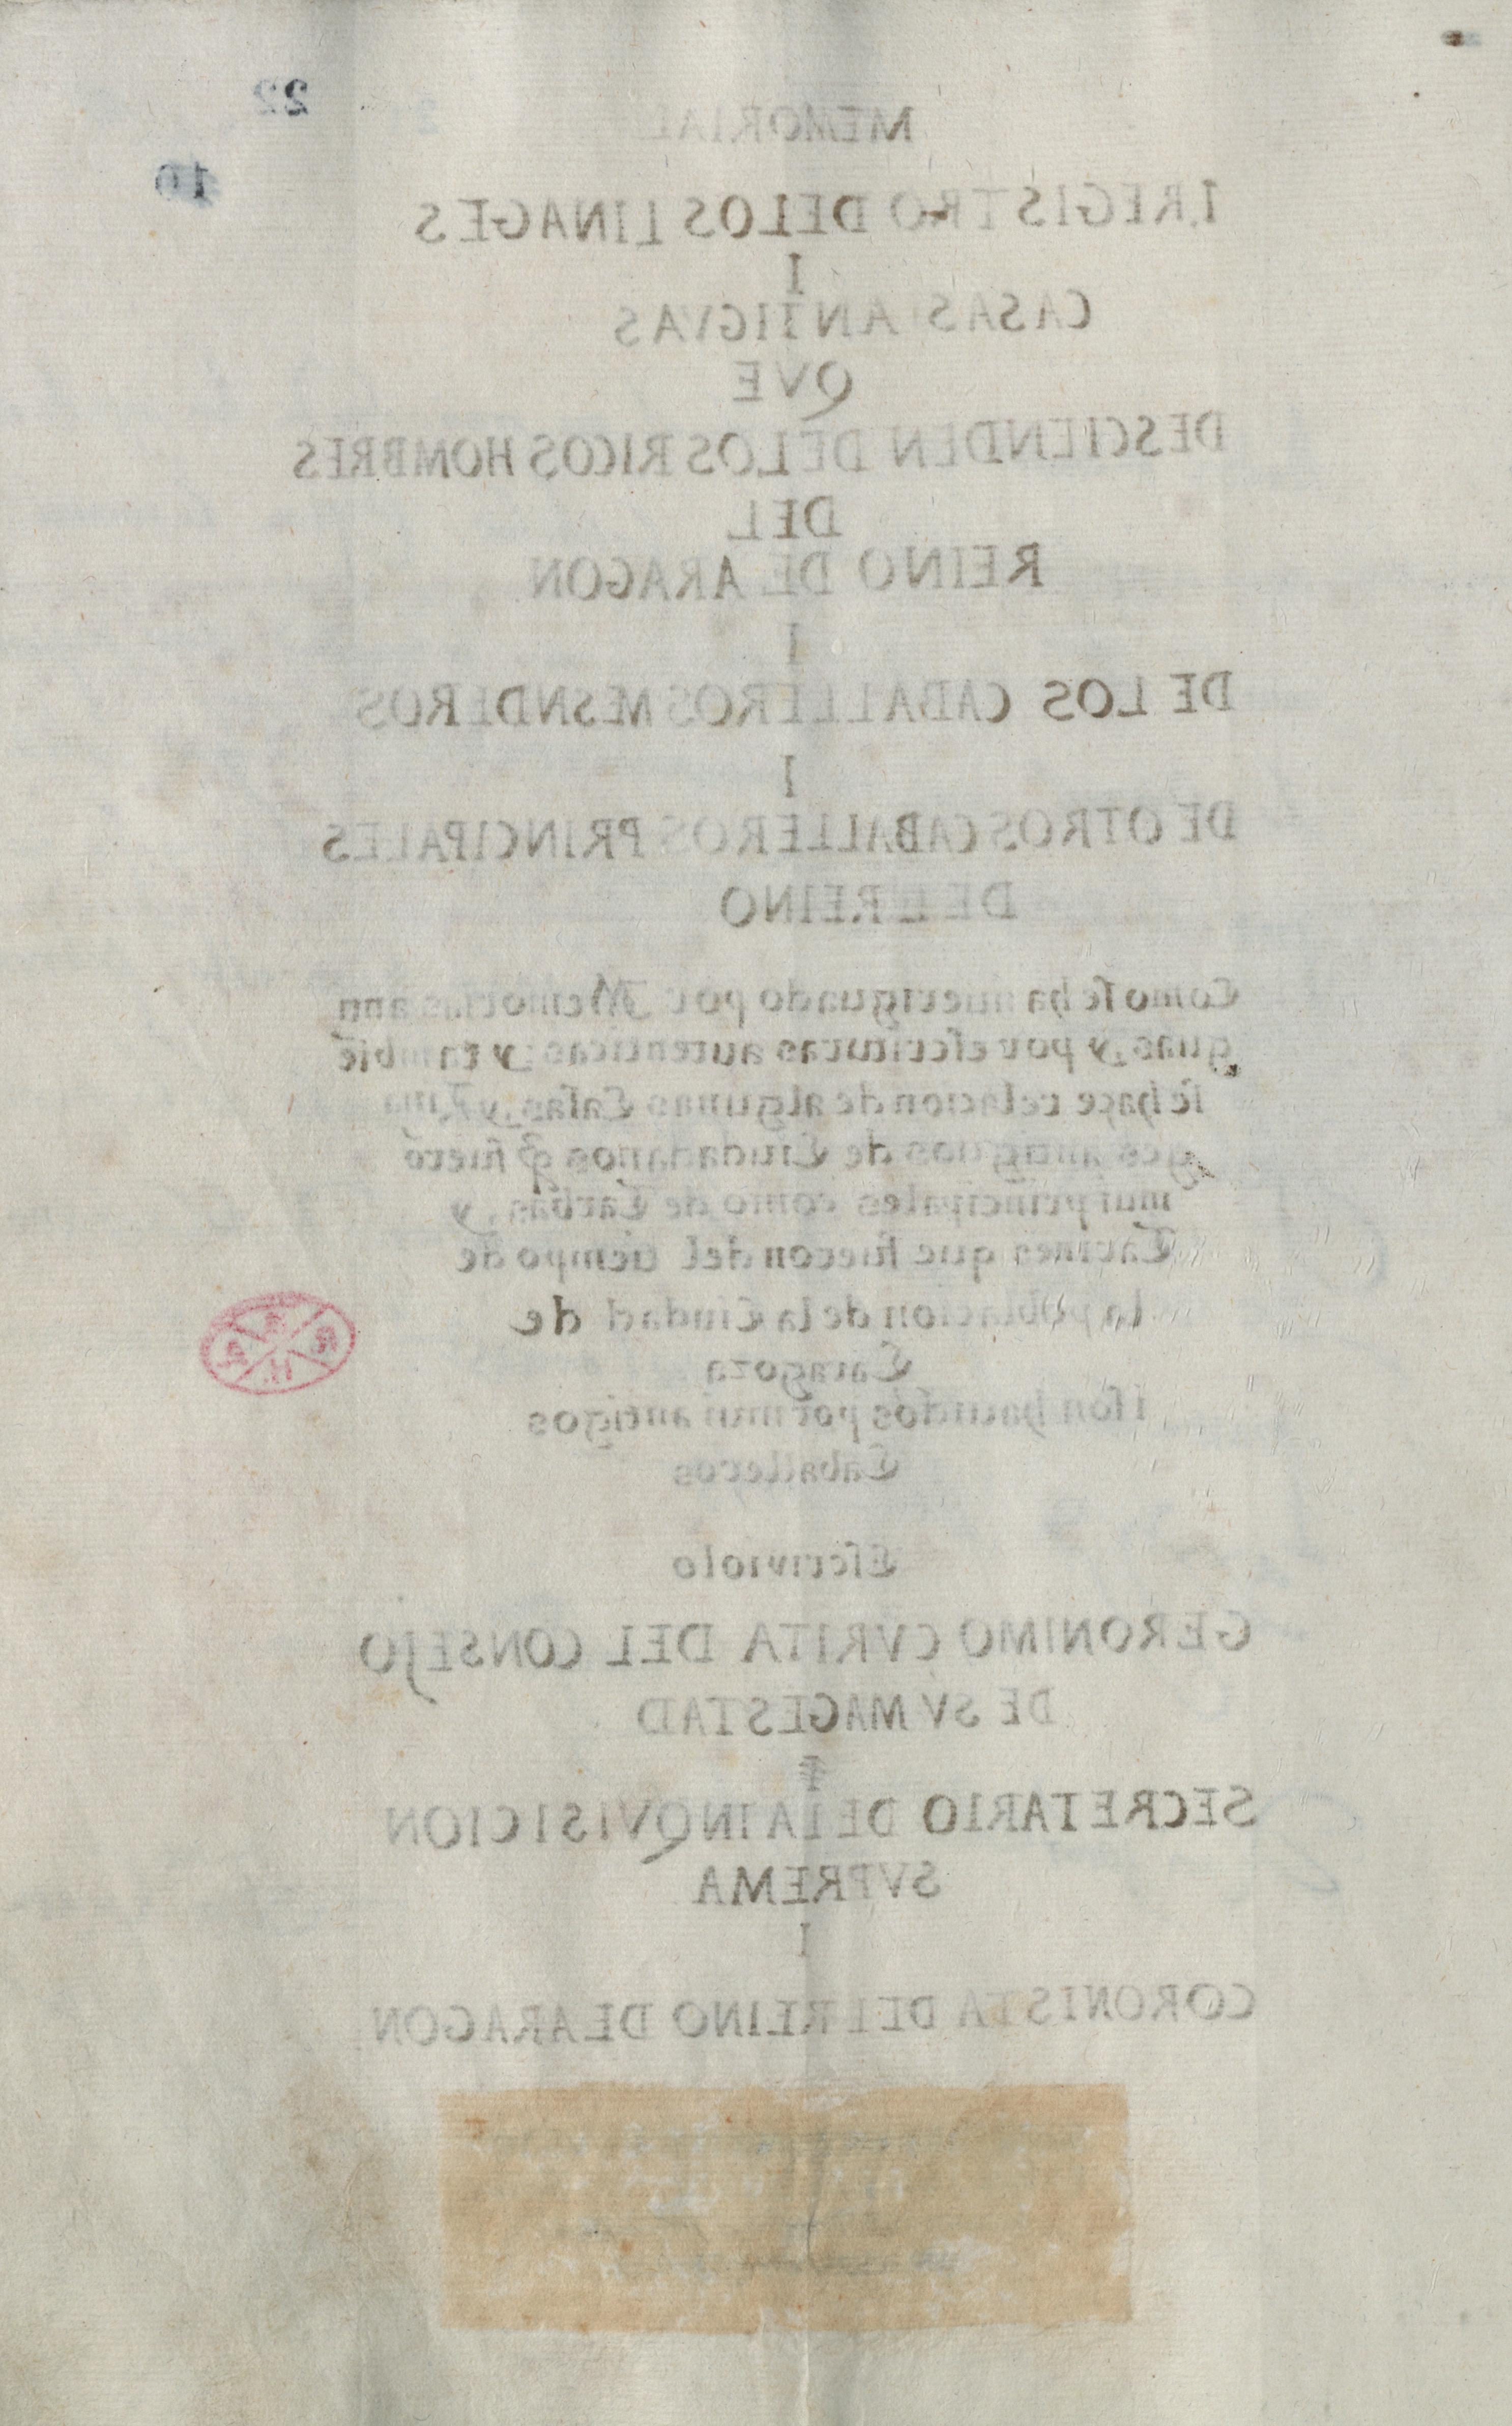 22
10
MEMORIAL
I REGISTRO DE LOS LINAGES
I
CASAS ANTIGVAS
QVE
DESCIENDEN DE LOS RICOS HOMBRES
DEL
REINO DE ARAGON
I
DE LOS CABALLEROS MESNDEROS
I
DE OTROS CABALLEROS PRINCIPALES
DEL REINO
Como se ha aueriguado por Memorias anti
guas, y por escrituras autenticas: y tambiē
se haçe relacion de algunas Casas, y Lina
ges antiguos de Ciudadanos q̄ fuerō
mui principales como de Tarbas, y
Tarines que fueron del tiempo de
la poblacion de la Ciudad de
Caragoza
i son hauidos por mui antigos
Caballeros
Escriviolo
GERONIMO ÇVRITA DEL CONSEJO
DE SV MAGESTAD
I
SECRETARIO DE LA INQVISICION
SVPREMA
I
CORONISTA DEL REINO DE ARAGON